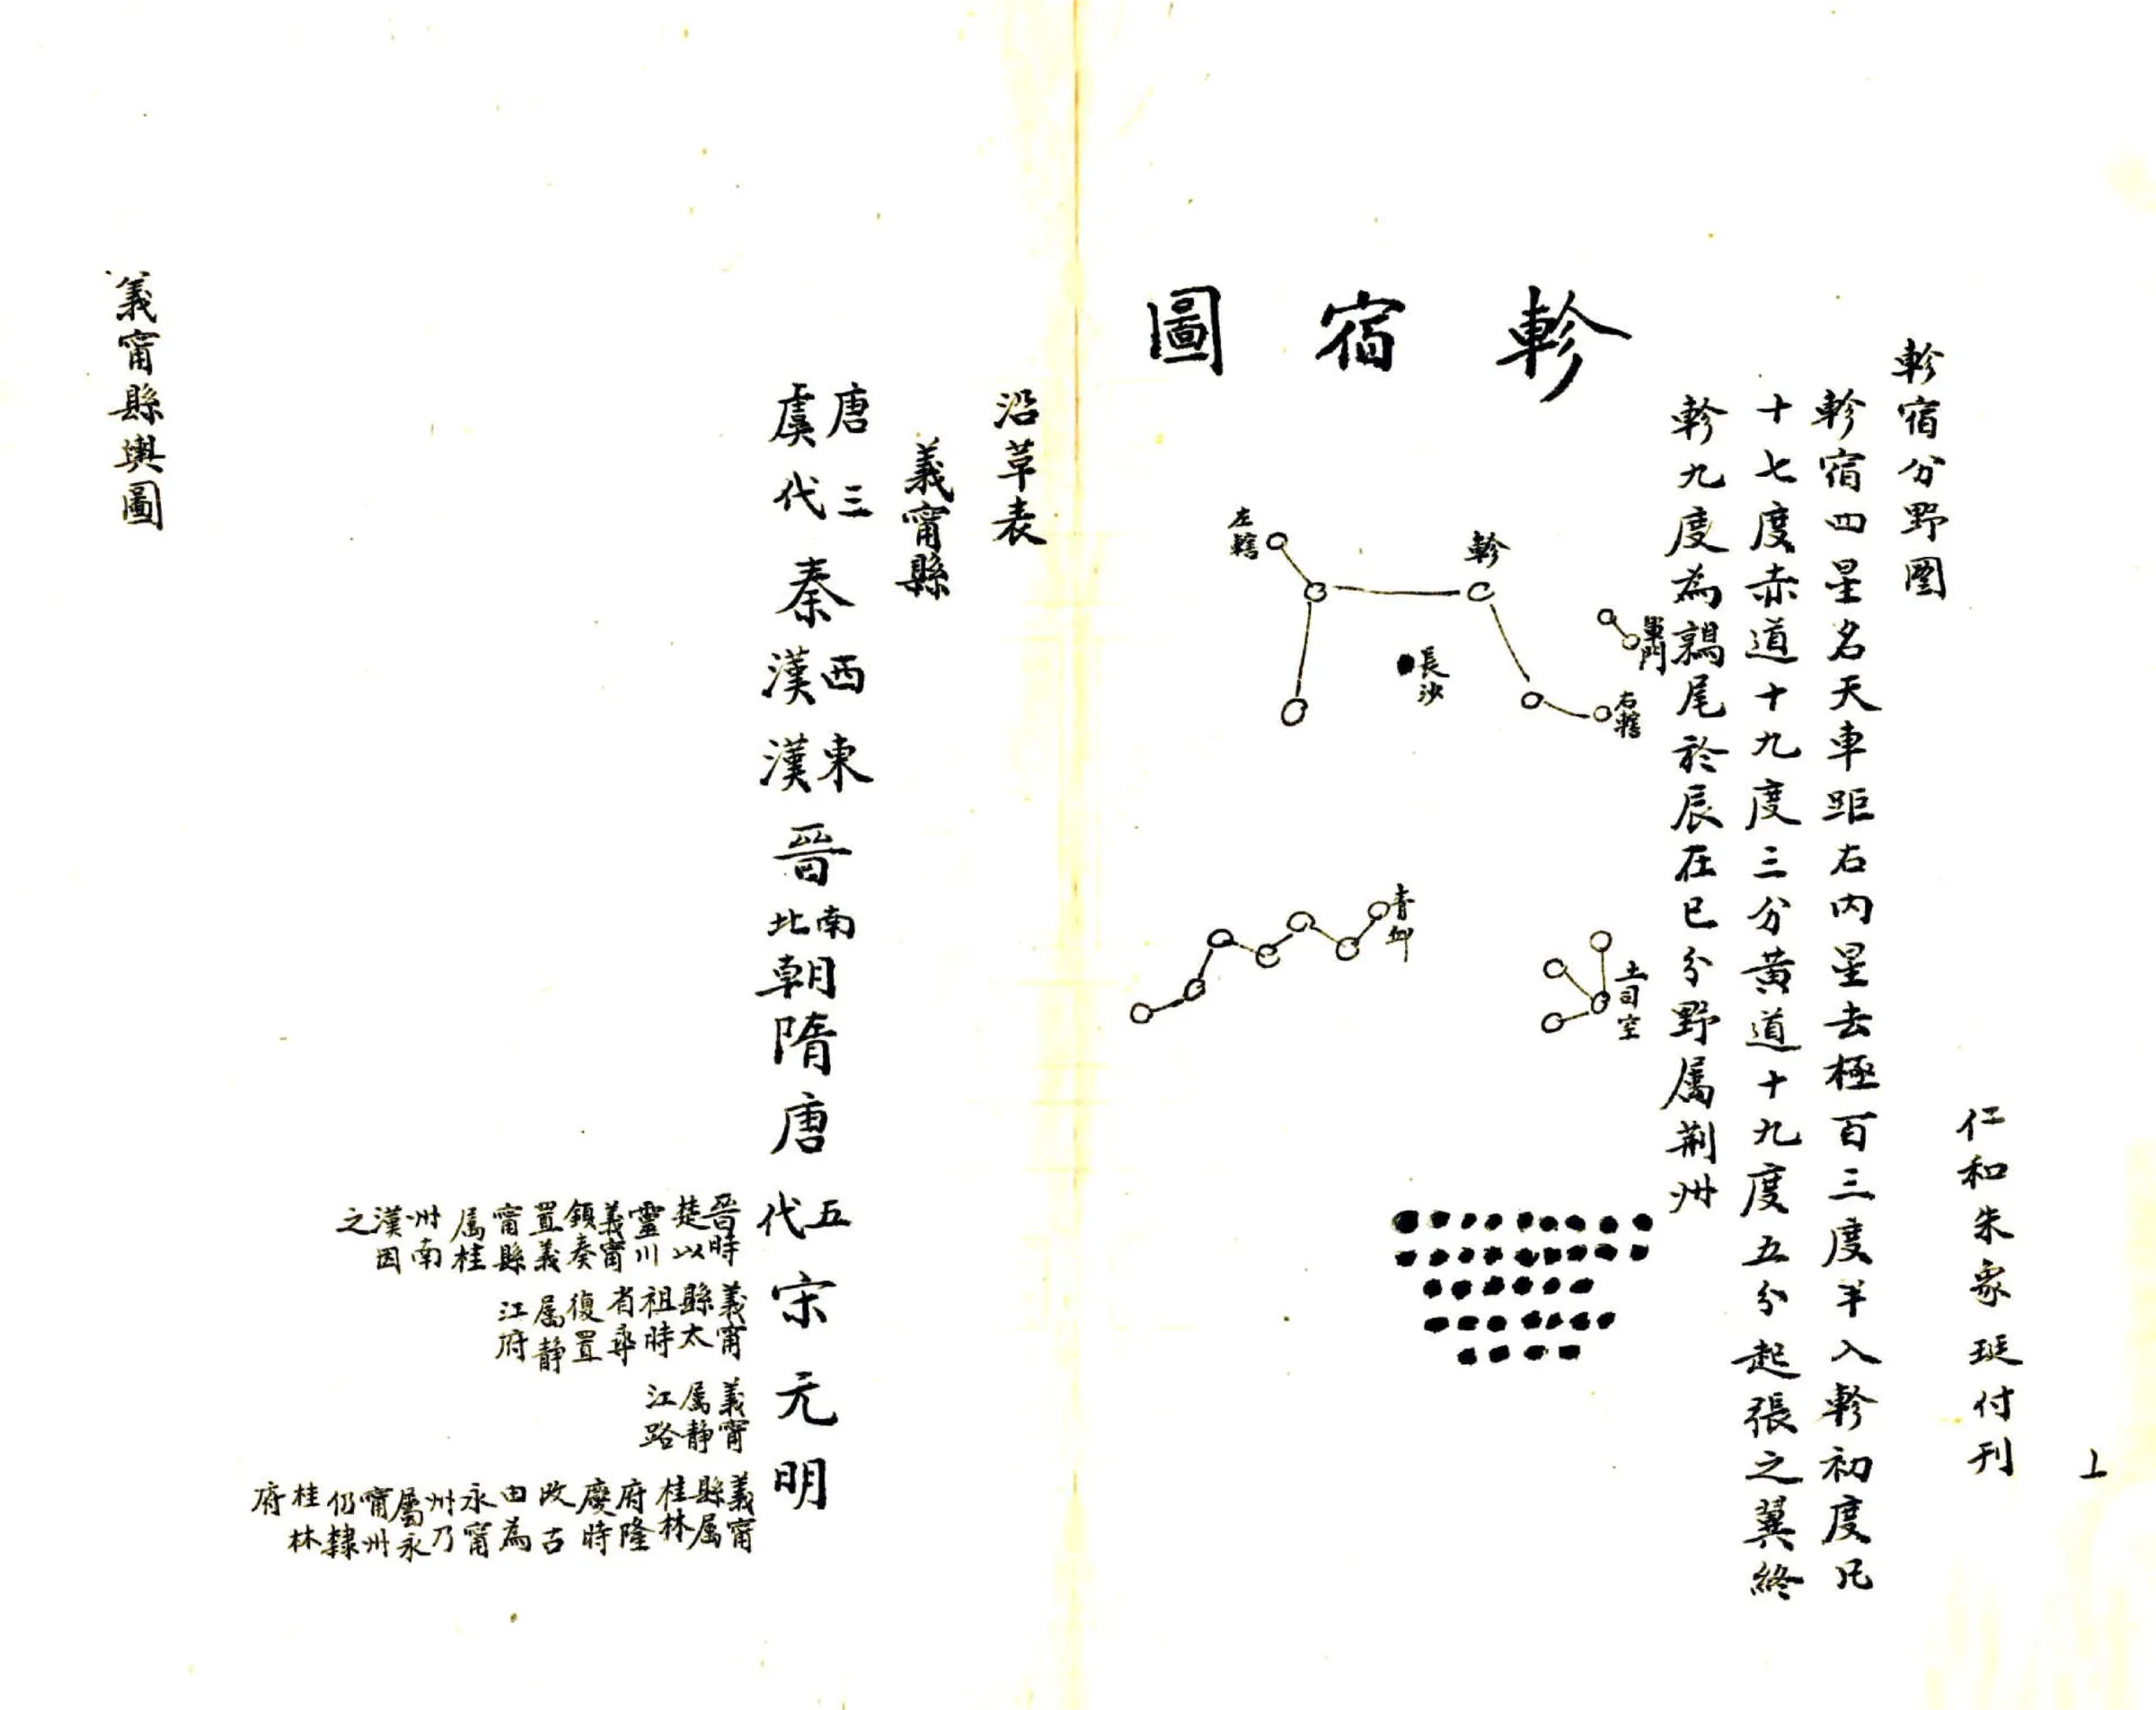 上
仁和朱象珽付刊
軫宿分野圖
軫宿四星名天車距右內星去極百三度半入軫初度凡
十七度赤道十九度三分黃道十九度五分起張之翼終
軫九度為鶉尾於辰在巳分野屬荆州
軫宿圖
軫
左轄
右轄
軍門
長沙
青邱
土司空
沿革表
義甯縣
唐虞
三代
秦
西漢
東漢
晉
南北朝
隋
唐
五代
晉時
楚以
靈川
義甯
鎮奏
置義
甯縣
属桂
州南
漢因
之
宋
義甯
縣太
祖時
省尋
復置
属静
江府
元
義甯
属静
江路
明
義甯
縣属
桂林
府隆
慶時
改古
田為
永甯
州乃
屬永
甯州
仍隸
桂林
府
義甯縣輿圖